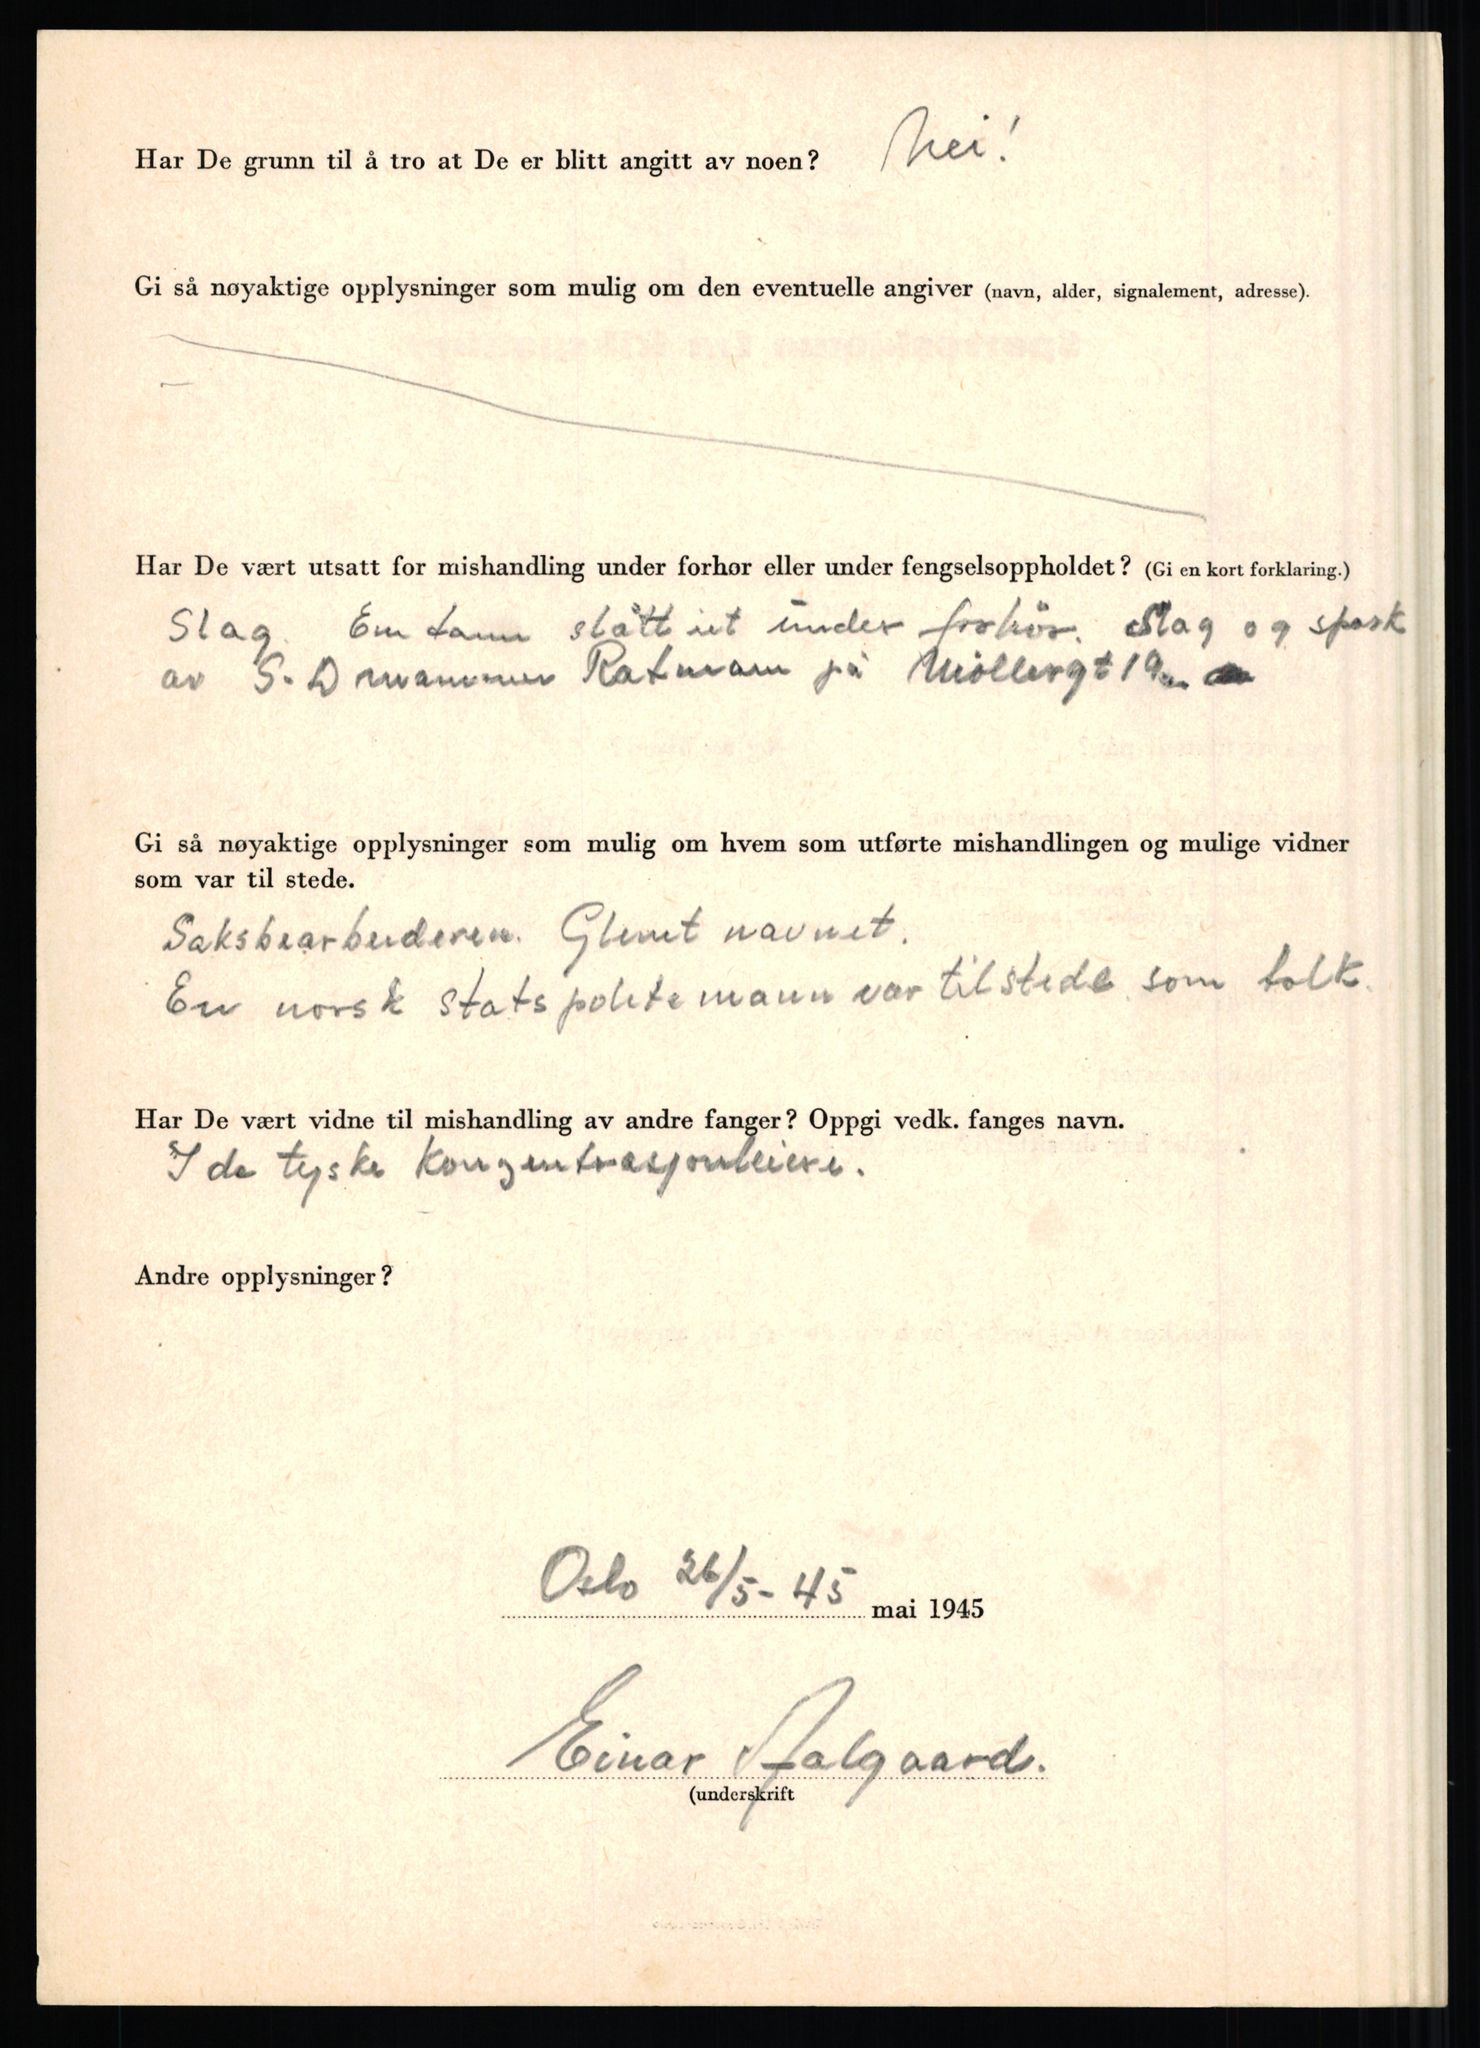 Har De grunn til å tro at De er blitt angitt av noen? Nei!
Gi så nøyaktige opplysninger som mulig om den eventuelle angiver (navn, alder, signalement, adresse).
Har De vært utsatt for mishandling under forhør eller under fengselsoppholdet? (Gi en kort forklaring.)
Slag. En tann slått ut under forhör. Slag og spark
av S.D mannen Ratmann på Möllergt 19.
Gi så nøyaktige opplysninger som mulig om hvem som utførte mishandlingen og mulige vidner
som var til stede.
Saksbearbeideren. Glemt navnet.
En norsk statspolitemann var tilstede som tolk.
Har De vært vidne til mishandling av andre fanger? Oppgi vedk. fanges navn.
I de tyske konzentrasjonleiere.
Andre opplysninger?
Oslo 26/5-45 mai 1945
Einar Aalgaard.
(underskrift